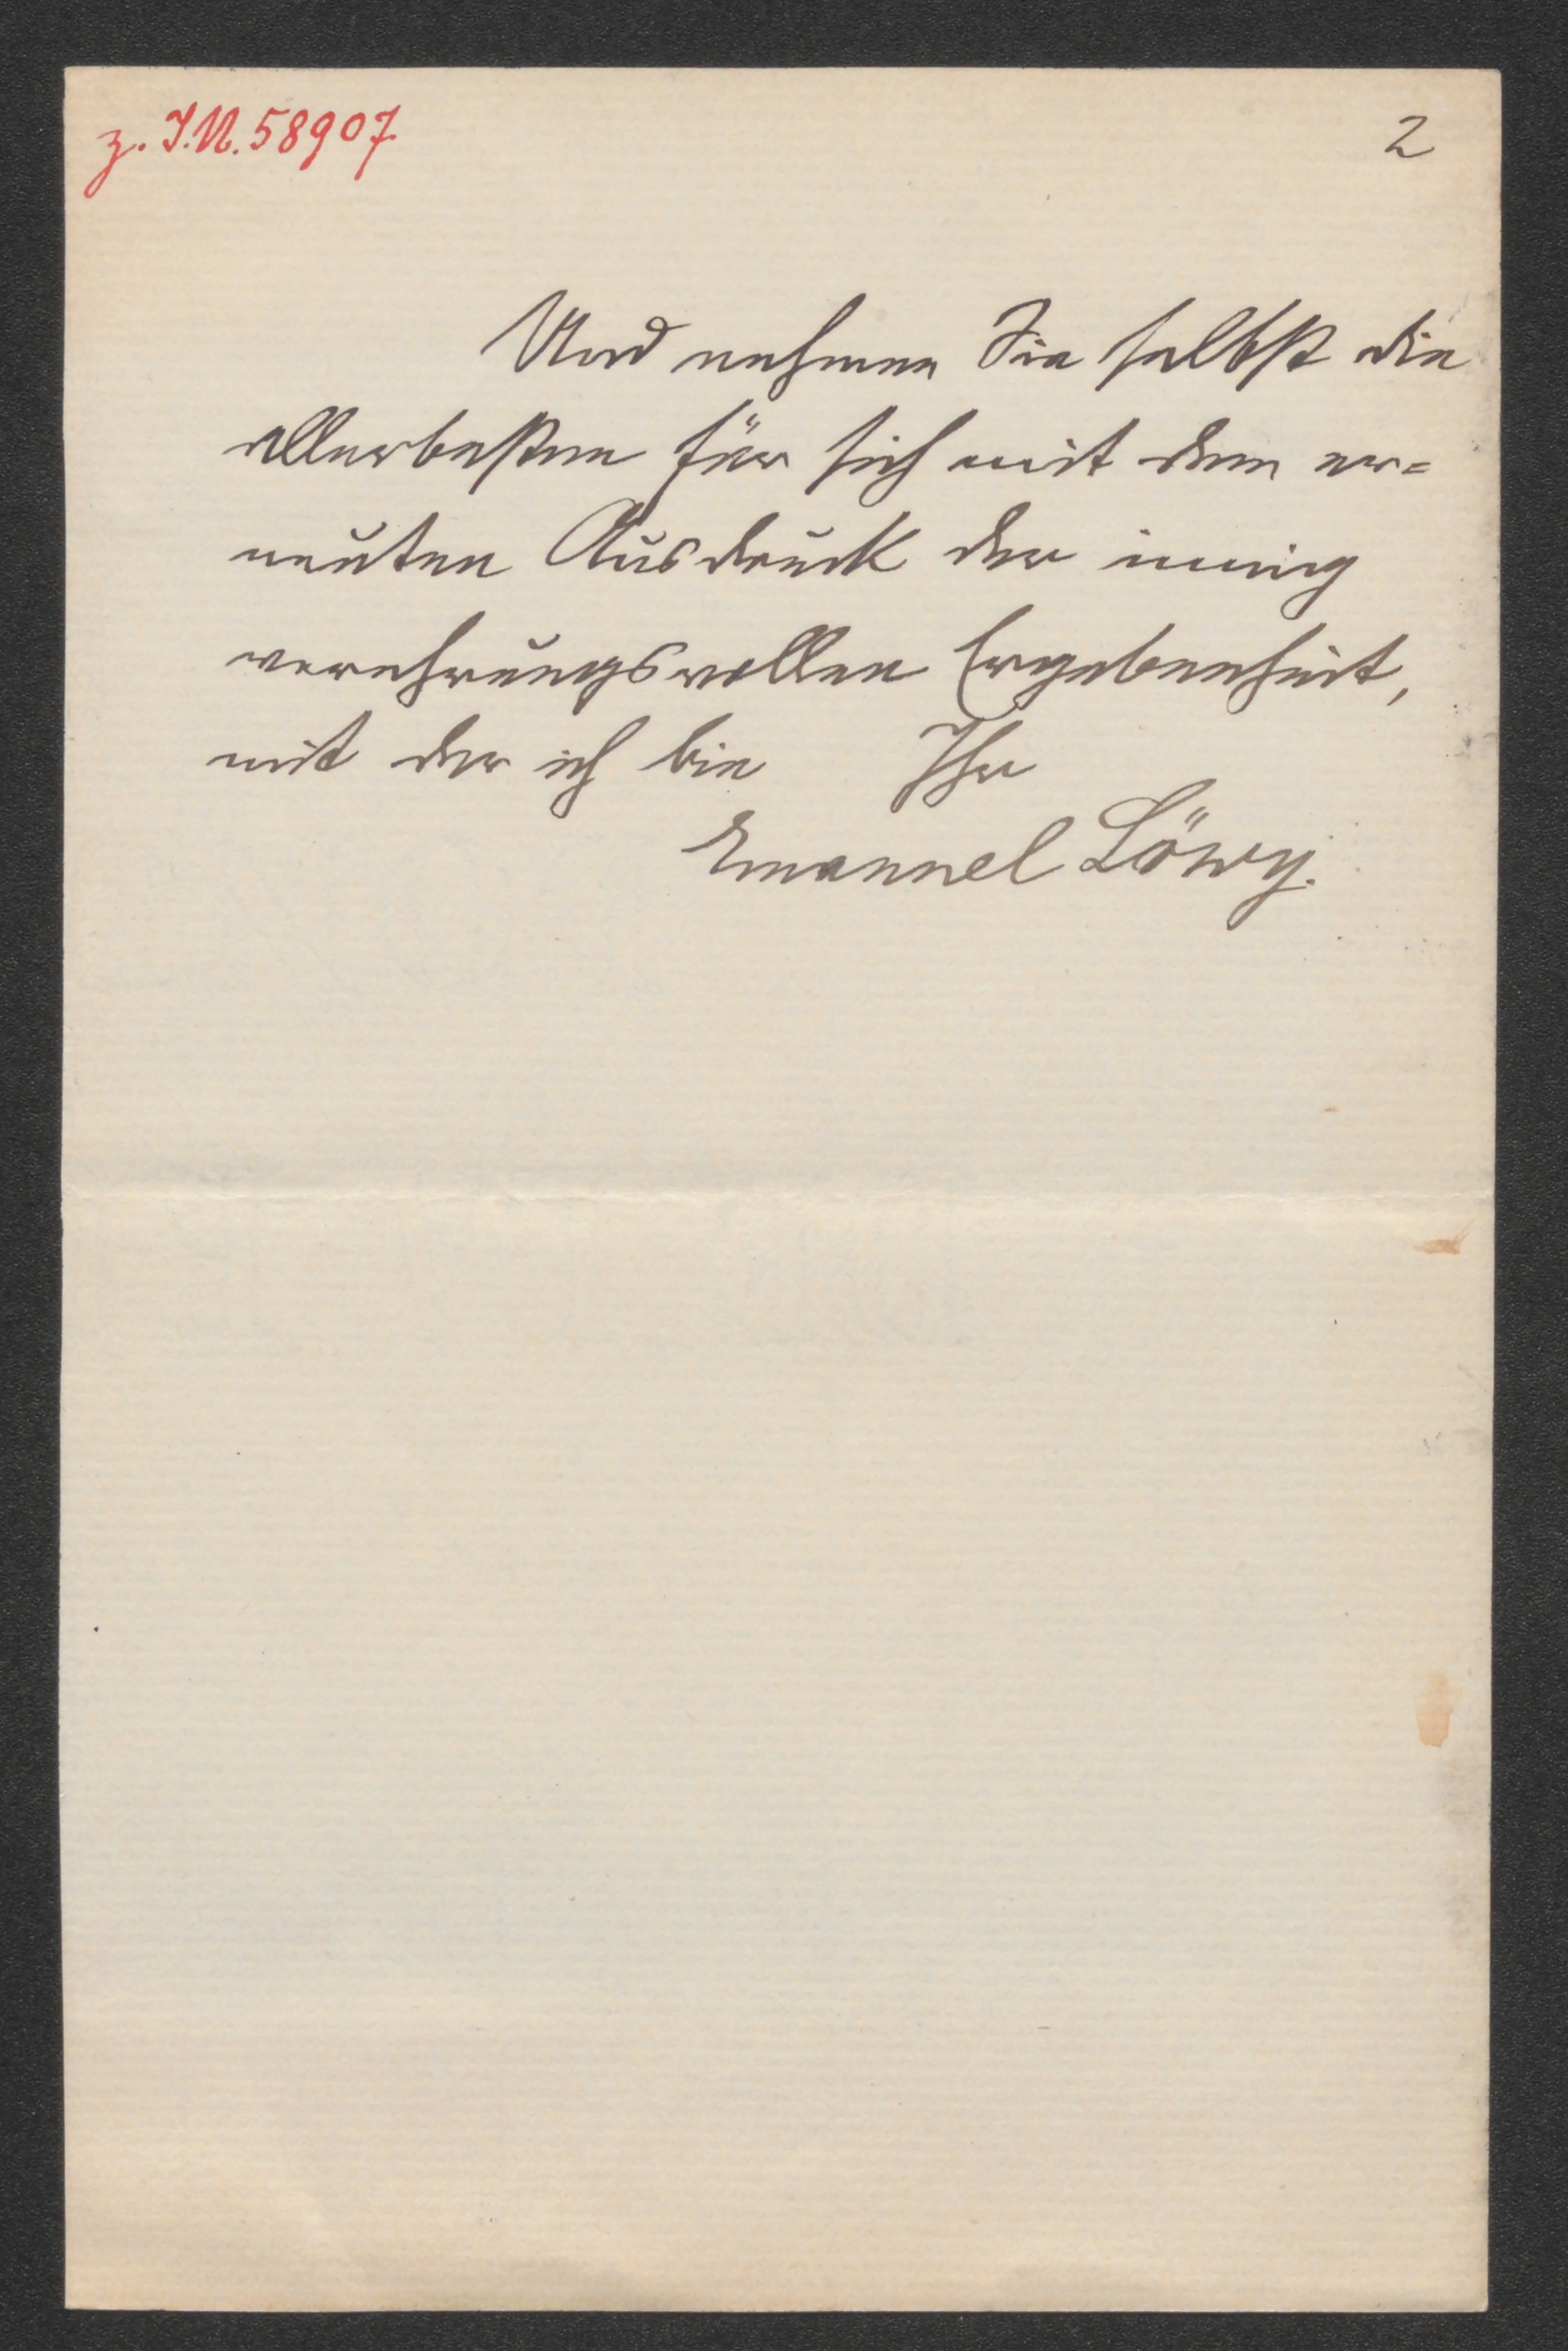 z. I.N. 58907
2
Und nehmen Sie selbst die
allerbesten für sich mit dem er=
neuten Ausdruck der innig
verehrungsvollen Ergebenheit,
mit der ich bin Ihr
Emanuel Löwy.